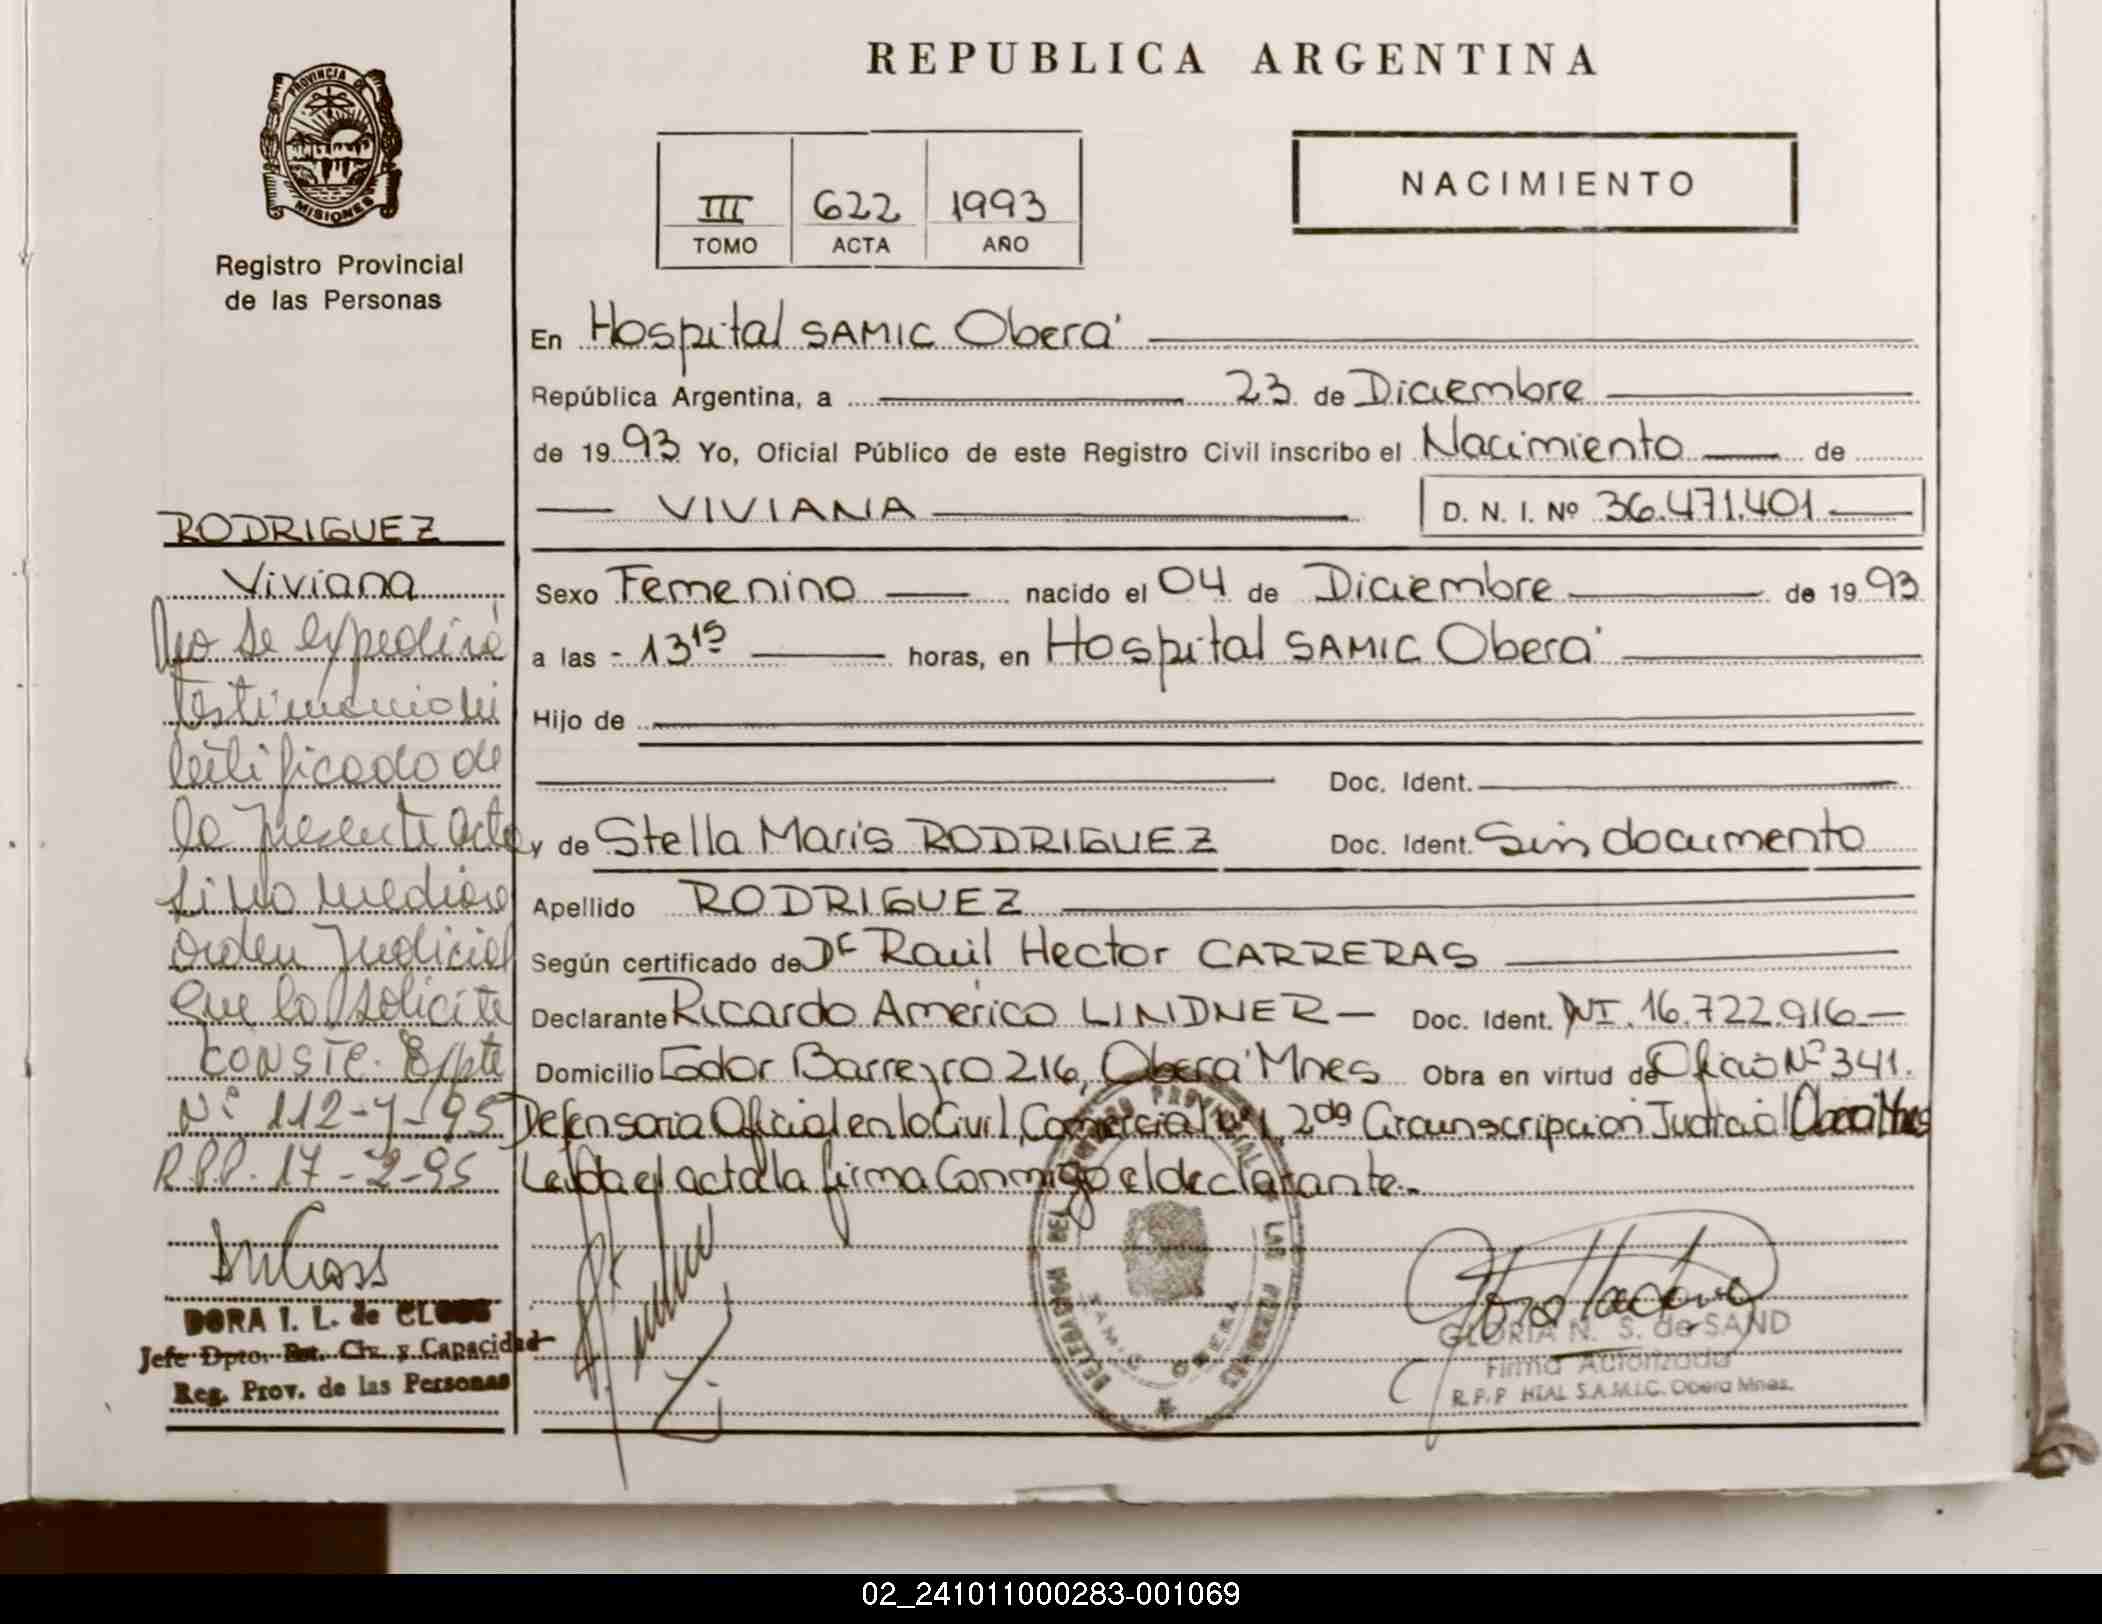 REPUBLICA ARGENTINA
PROVINCIA DE
MISIONES
Registro Provincial
de las Personas
III 622 1993
TOMO ACTA AÑO
NACIMIENTO
En Hospital SAMIC Oberá
República Argentina, a 23 de Diciembre
de 1993 Yo, Oficial Público de este Registro Civil inscribo el Nacimiento de
VIVIANA D. N. I. Nº 36.471.401
Sexo Femenino nacido el 04 de Diciembre de 1993
a las - 13 15 horas, en Hospital SAMIC Oberá
Hijo de
Doc. Ident.
y de Stella Maris RODRIGUEZ Doc. Ident. Sin documento
Apellido RODRIGUEZ
Según certificado de Dr Raúl Hector CARRERAS
Declarante Ricardo Américo LINDNER Doc. Ident. DNI. 16.722.916
Domicilio Eodor Barreyro 216, Oberá Mnes Obra en virtud de Oficio Nº 341.
Defensoria Oficial en lo Civil, Comercial Nº 1, 2da Circunscripcion Judicial Oberá Mnes
Leida el acta la firma conmigo el declarante.
RODRIGUEZ
Viviana
No se expedirá
testimonio ni
certificado de
la presente acta
si no mediare
orden Judicial
que lo solicite
CONSTE. Expte
Nº 112-7-95
R.P.P. 17-2-95
DORA I. L. de CLOSS
Jefe Dpto. Est. Civ. y Capacidad
Reg. Prov. de las Personas
REGISTRO PROVINCIAL DE LAS PERSONAS
SAMIC OBERA
GLORIA N. S. de SAND
Firma Autorizada
R.P.P HTAL S.A.M.I.C. Oberá Mnes.
02_241011000283-001069